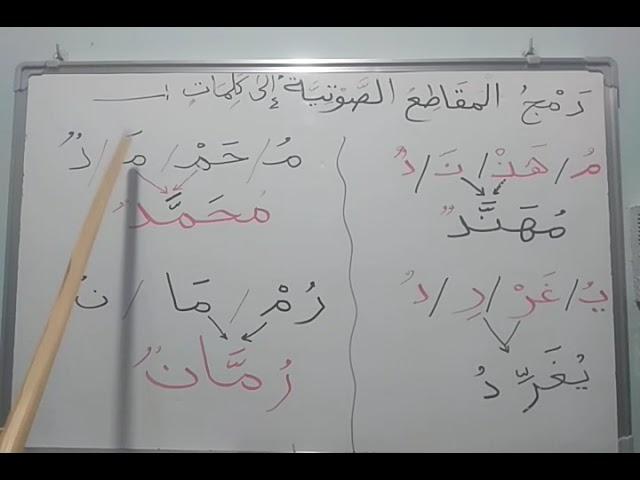 دَمْجُ الْمَقَاطِعِ الصَّوْتِيَّةِ إِلَى كَلِمَاتٍ :
مُ / هَنْ / نَ / دٌ
مُهَنَّدٌ
يُ / غَرْ / رِ / دُ
يُغَرِّدُ
مُ / حَمْ / مَ / دٌ
مُحَمَّدٌ
رُمْ / مَا / نٌ
رُمَّانٌ